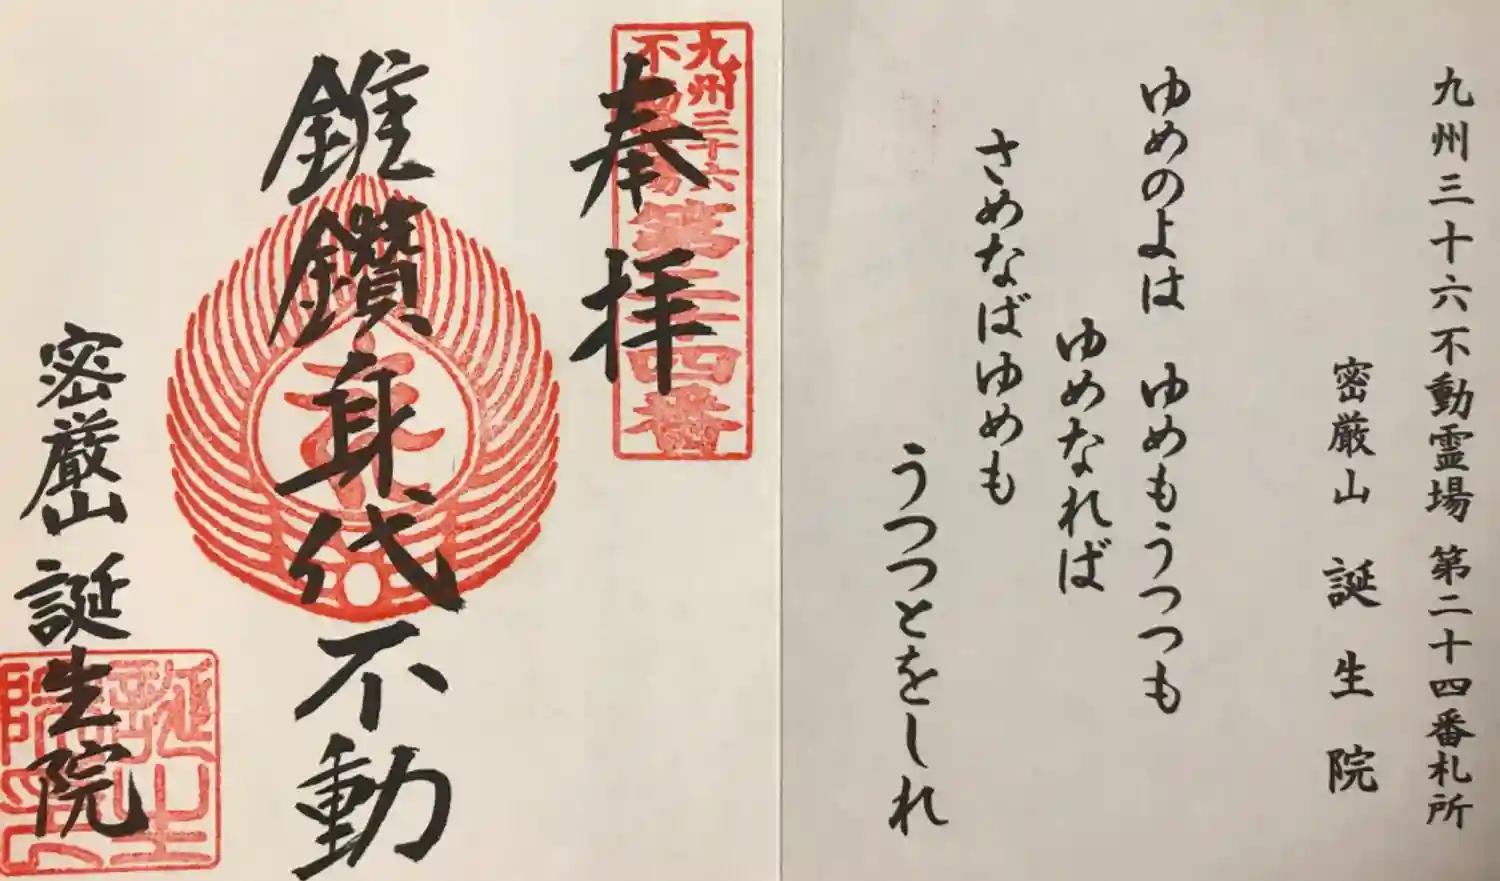 九州三十六不動霊場 第二十四番札所
密厳山 誕生院
ゆめのよは ゆめもうつつも
ゆめなれば
さめなばゆめも
うつつとをしれ
九州三十六
不動霊場
第二十四番
奉拝
錐鑽身代不動
密厳山 誕生院
誕生
院印